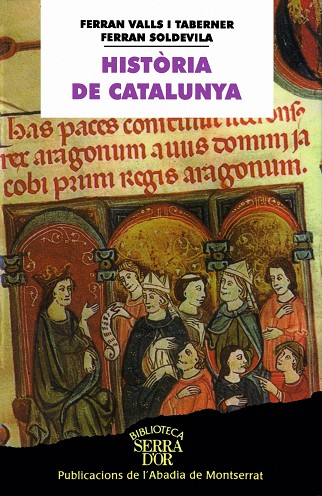 FERRAN VALLS I TABERNER
FERRAN SOLDEVILA
HISTÒRIA
DE CATALUNYA
has paces
rex aragonum avus domini ja
cobi primi regis aragonum.
BIBLIOTECA
SERRA
D'OR
Publicacions de l'Abadia de Montserrat